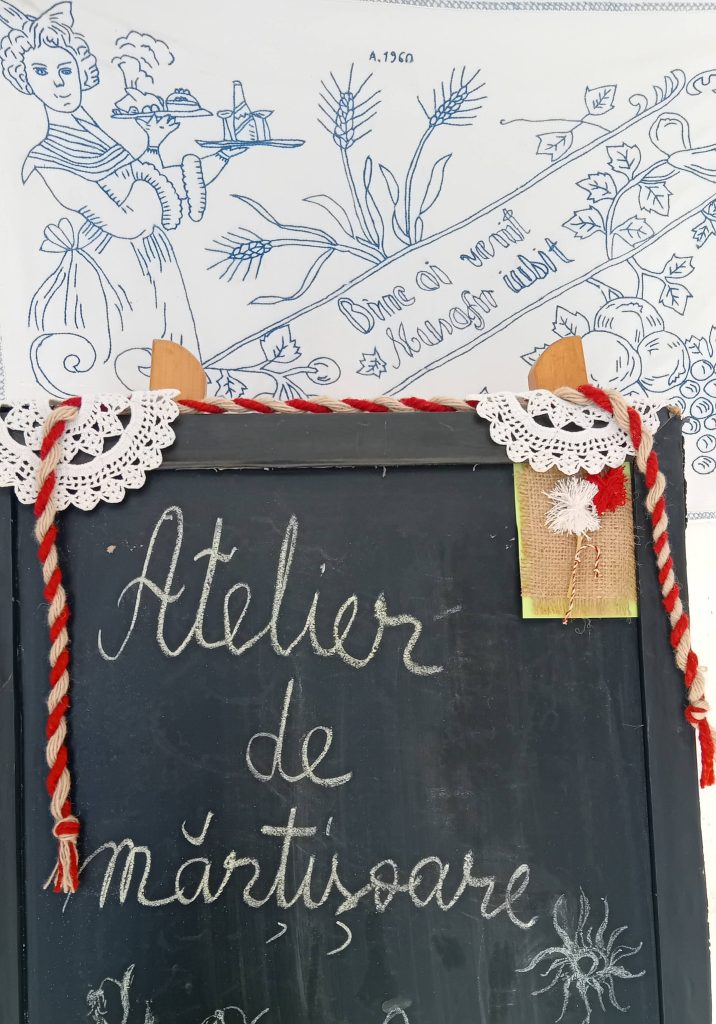 A.1960
Bine ai venit
Musafir iubit
Atelier
de
mărțișoare